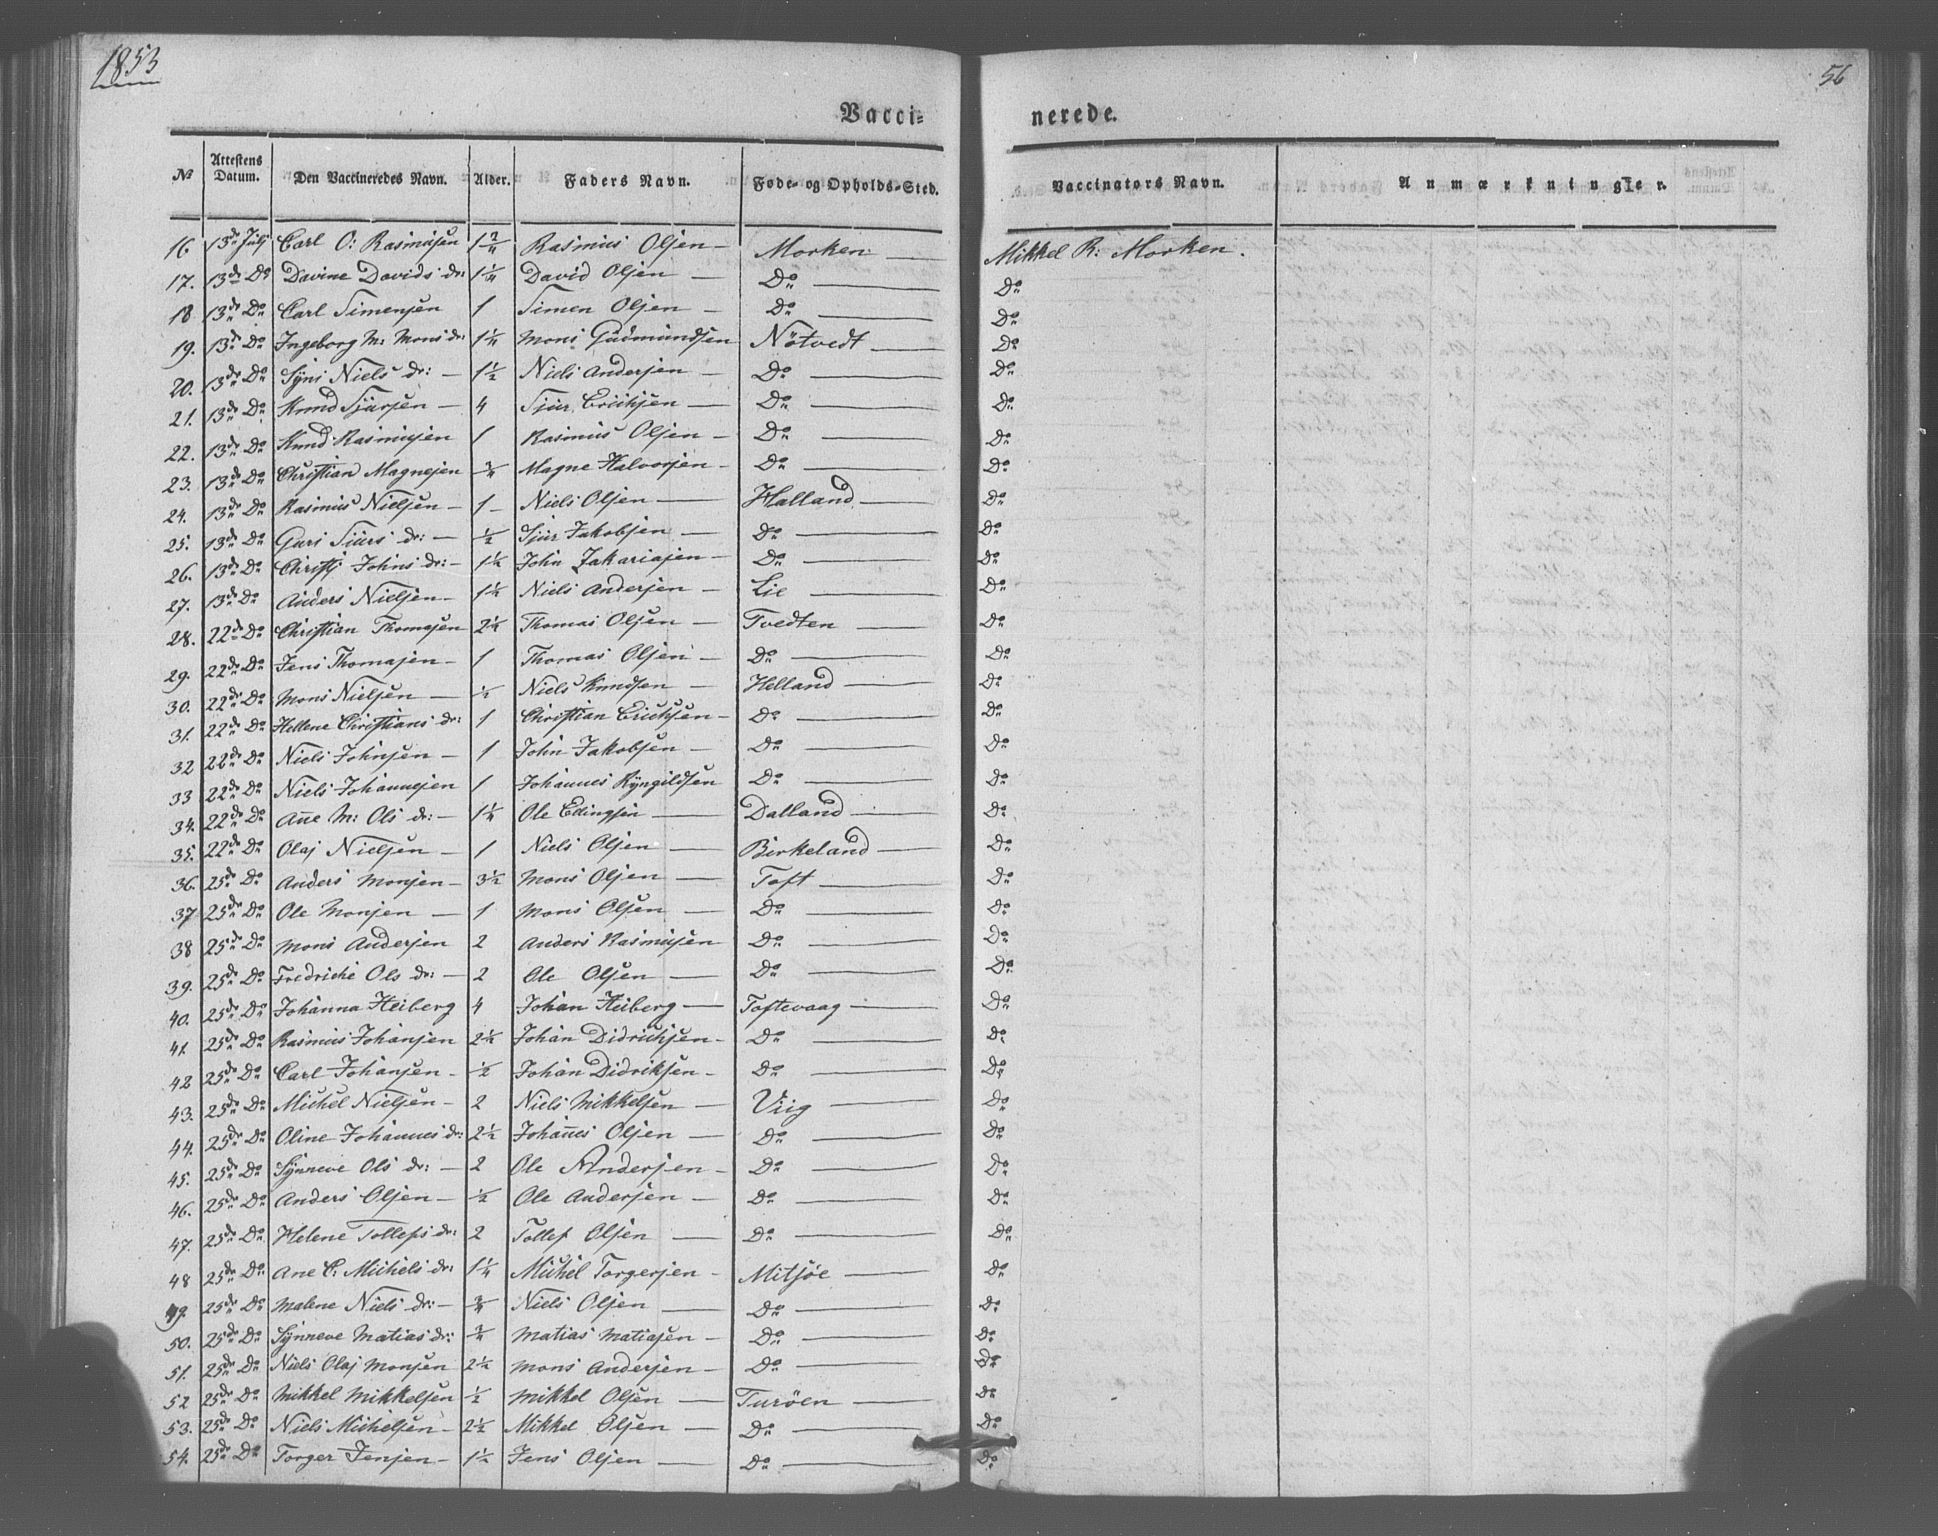 1853
56
Vacci=
nerede.
No Attestens Datum. Den Vaccineredes Navn. Alder. Faders Navn. Føde- og Opholds-Sted. Vaccinators Navn. Anmærkninger.
16 13de Julj Carl O: Rasmusen 1 3/4 Rasmus Olsen Morken Mikkel R: Morken.
17. 13de Do Davine Davids dr: 1 1/4 David Olsen Do Do
18 13de Do Carl Simensen 1 Simen Olsen Do Do
19. 13de Do Ingeborg M: Mons dr: 1 1/4 Mons Gudmundsen Nötvedt Do
20. 13de Do Syni Niels dr: 1 1/2 Niels Andersen Do Do
21. 13de Do Knud Sjursen 4 Sjur Erichsen Do Do
22. 13de Do Knud Rasmusen 1 Rasmus Olsen Do Do
23. 13de Do Christian Magnesen 3/4 Magne Halvorsen Do Do
24. 13de Do Rasmus Nielsen 1 Niels Olsen Halland Do
25. 13de Do Guri Siurs dr: 1/2 Sjur Jakobsen Do Do
26. 13de Do Christj Johns dr: 1 1/4 John Zakariasen Do Do
27. 13de Do Anders Nielsen 1 1/4 Niels Andersen Lie Do
28. 22de Do Christian Thomasen 2 1/4 Thomas Olsen Tvedten Do
29. 22de Do Jens Thomasen 1 Thomas Olsen Do Do
30. 22de Do Mons Nielsen 1/2 Niels Knudsen Helland Do
31. 22de Do Hellene Christians dr: 1 Christian Erichsen Do Do
32 22de Do Niels Johnsen 1 John Jakobsen Do Do
33 22de Do Niels Johannesen 1 Johannes Ryngildsen Do Do
34. 22de Do Ane M: Ols dr: 1 1/4 Ole Ellingsen Dalland Do
35. 22de Do Olaj Nielsen 1 Niels Olsen Birkeland Do
36. 25de Do Anders Monsen 3 1/2 Mons Olsen Toft Do
37 25de Do Ole Monsen 1 Mons Olsen Do Do
38 25de Do Mons Andersen 2 Anders Rasmusen Do Do
39. 25de Do Fredriche Ols dr: 2 Ole Olsen Do Do
40. 25de Do Johanna Heiberg 4 Johan Heiberg Toftevaag Do
41. 25de Do Rasmus Johansen 2 1/2 Johan Didrichsen Do Do
42 25de Do Carl Johansen 1/2 Johan Didriksen Do Do
43. 25de Do Michel Nielsen 2 Niels Mikkelsen Viig Do
44. 25de Do Oline Johannes dr: 2 1/2 Johanes Olsen Do Do
45. 25de Do Synneve Ols dr: 2 Ole Andersen Do Do
46. 25de Do Anders Olsen 1/2 Ole Andersen Do Do
47. 25de Do Helene Tollefs dr: 2 Tollef Olsen Do Do
48 25de Do Ane C: Michels dr: 1 1/4 Michel Torgersen Mitsöe Do
49. 25de Do Malene Niels dr: 3/4 Niels Olsen Do Do
50. 25de Do Synneve Matias dr: 3/4 Matias Matiasen Do Do
51. 25de Do Niels Olaj Monsen 2 1/2 Mons Andersen Do Do
52 25de Do Mikkel Mikkelsen 1/2 Mikkel Olsen Turöen Do
53. 25de Do Niels Michelsen 2 1/2 Mikkel Olsen Do Do
54. 25de Do Torger Jensen 1 1/2 Jens Olsen Do Do